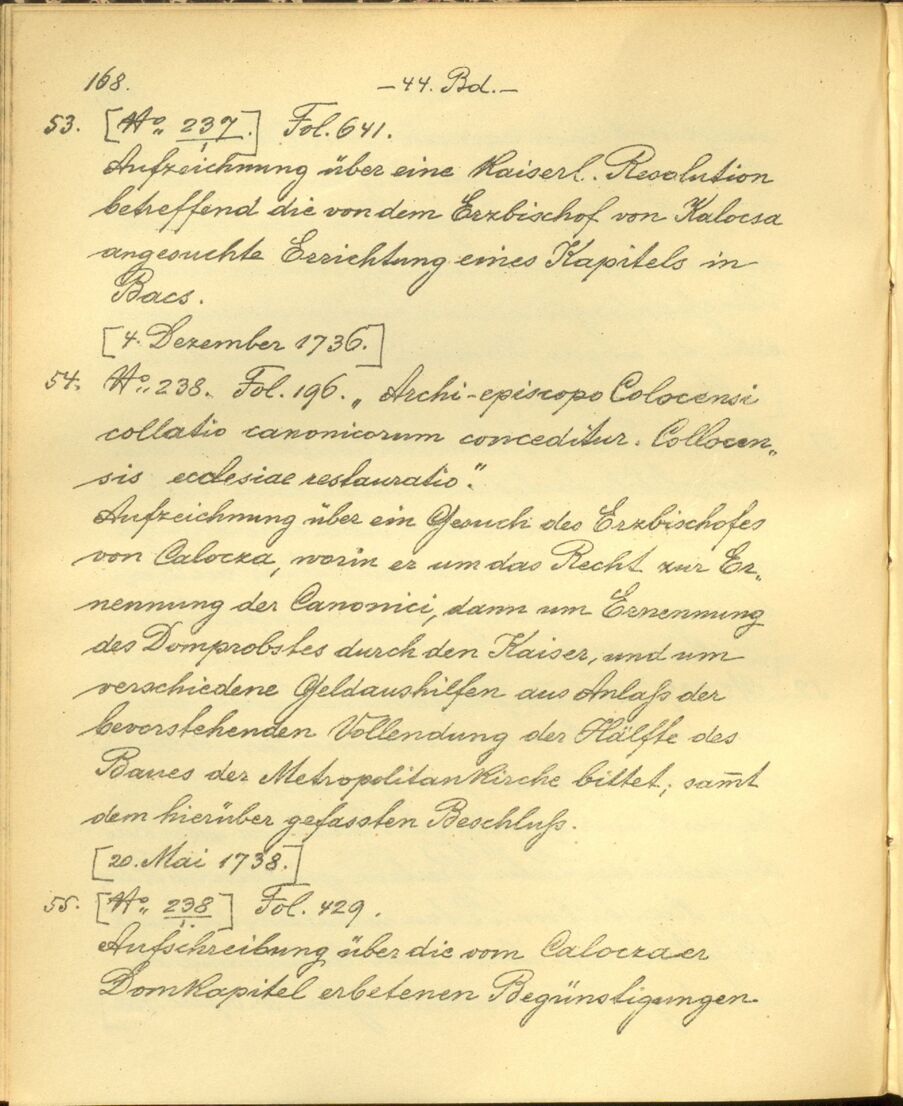 168.
— 44. Bd. —
53. [No. 237/1.] Fol. 641.
Aufzeichnung über eine Kaiserl. Resolution
betreffend die von dem Erzbischof von Kalocsa
angesuchte Errichtung eines Kapitels in
Bacs.
[4. Dezember 1736.]
54. No. 238. Fol. 196. „Archi-episcopo Colocensi
collatio canonicorum conceditur. Collocen„
sis ecclesiae restauratio."
Aufzeichnung über ein Gesuch des Erzbischofes
von Calocza, worin er um das Recht zur Er„
nennung der Canonici, dann um Ernennung
des Domprobstes durch den Kaiser, und um
verschiedene Geldaushilfen aus Anlaß der
bevorstehenden Vollendung der Hälfte des
Baues der Metropolitankirche bittet; sam̅t
dem hierüber gefassten Beschluß.
[20. Mai 1738.]
55. [No. 238/1.] Fol. 429.
Aufschreibung über die vom Caloczaer
Domkapitel erbetenen Begünstigungen